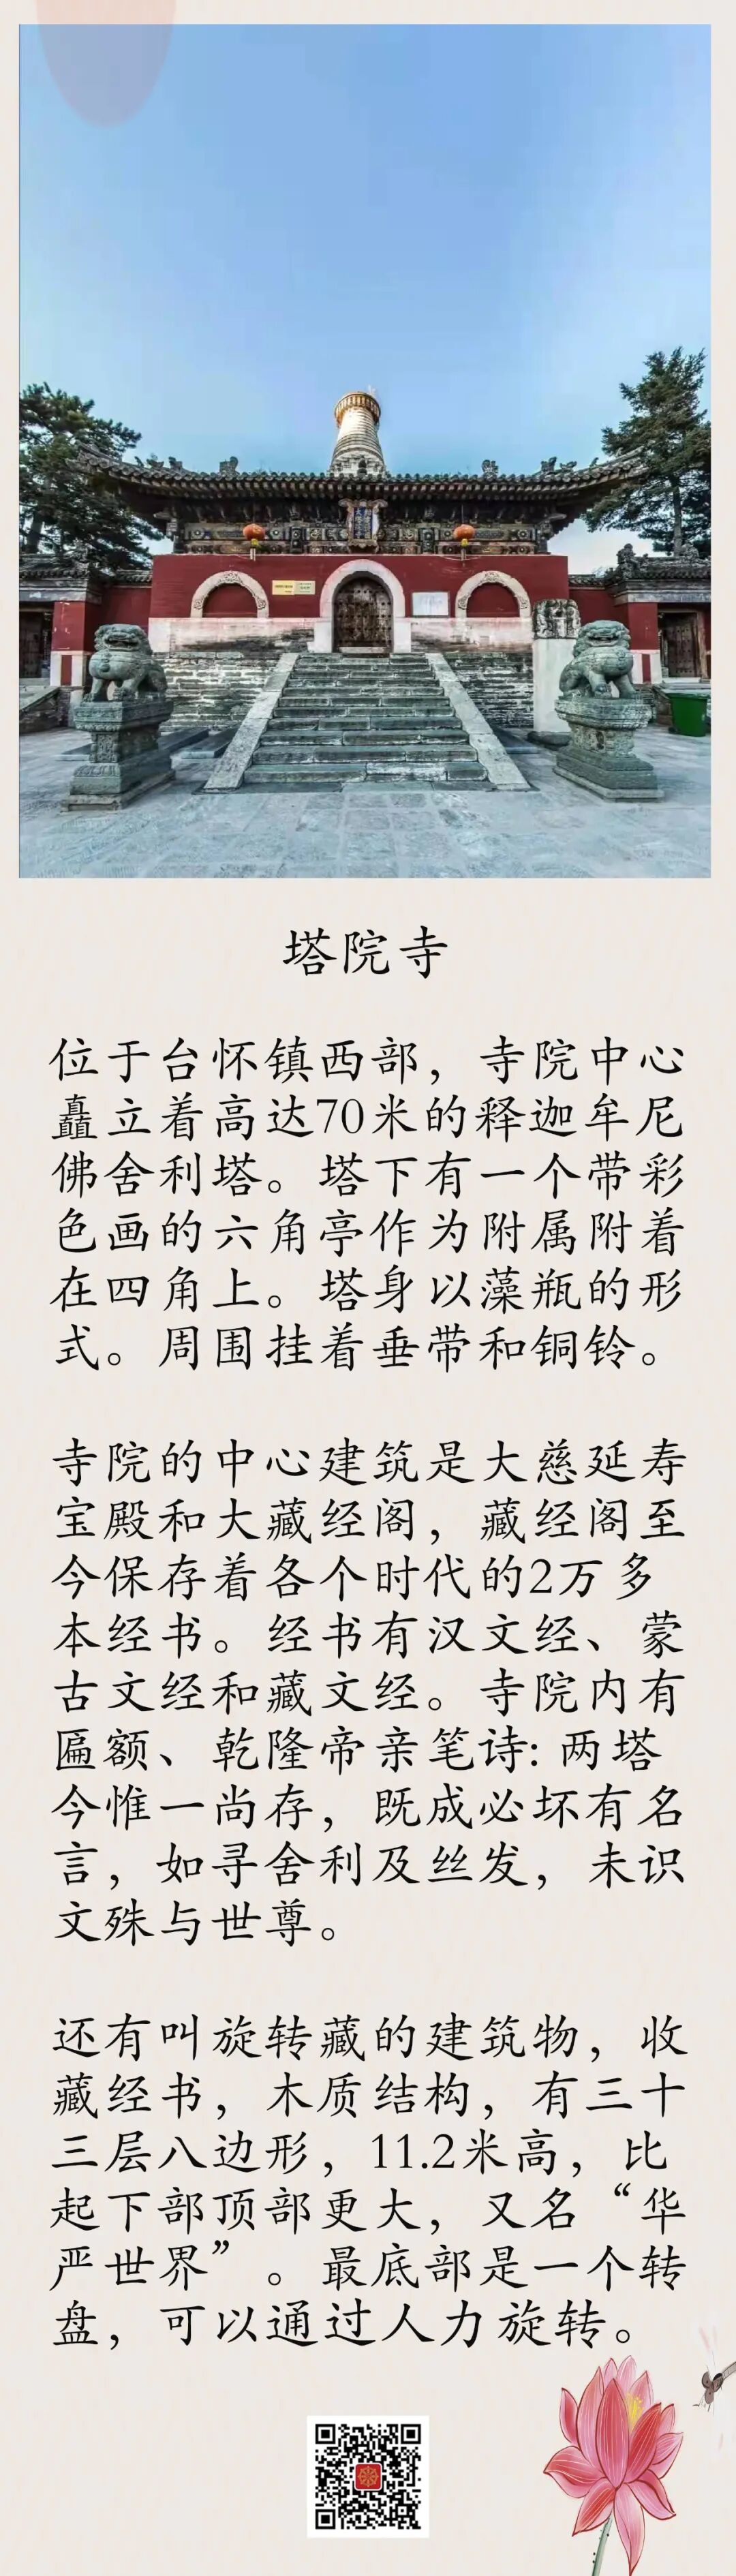 塔院寺
位于台怀镇西部，寺院中心
矗立着高达70米的释迦牟尼
佛舍利塔。塔下有一个带彩
色画的六角亭作为附属附着
在四角上。塔身以藻瓶的形
式。周围挂着垂带和铜铃。
寺院的中心建筑是大慈延寿
宝殿和大藏经阁，藏经阁至
今保存着各个时代的2万多
本经书。经书有汉文经、蒙
古文经和藏文经。寺院内有
匾额、乾隆帝亲笔诗: 两塔
今惟一尚存，既成必坏有名
言，如寻舍利及丝发，未识
文殊与世尊。
还有叫旋转藏的建筑物，收
藏经书，木质结构，有三十
三层八边形，11.2米高，比
起下部顶部更大，又名“华
严世界”。最底部是一个转
盘，可以通过人力旋转。